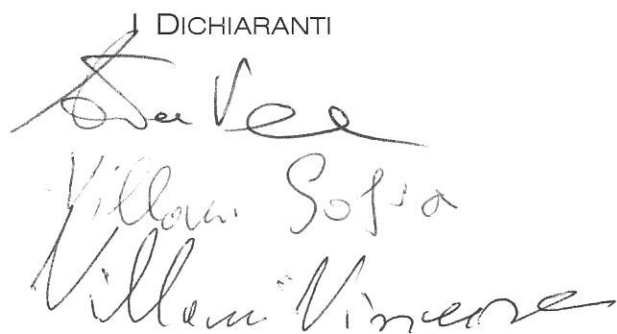 I DICHIARANTI
Villani Sofia
Villani Vincenzo